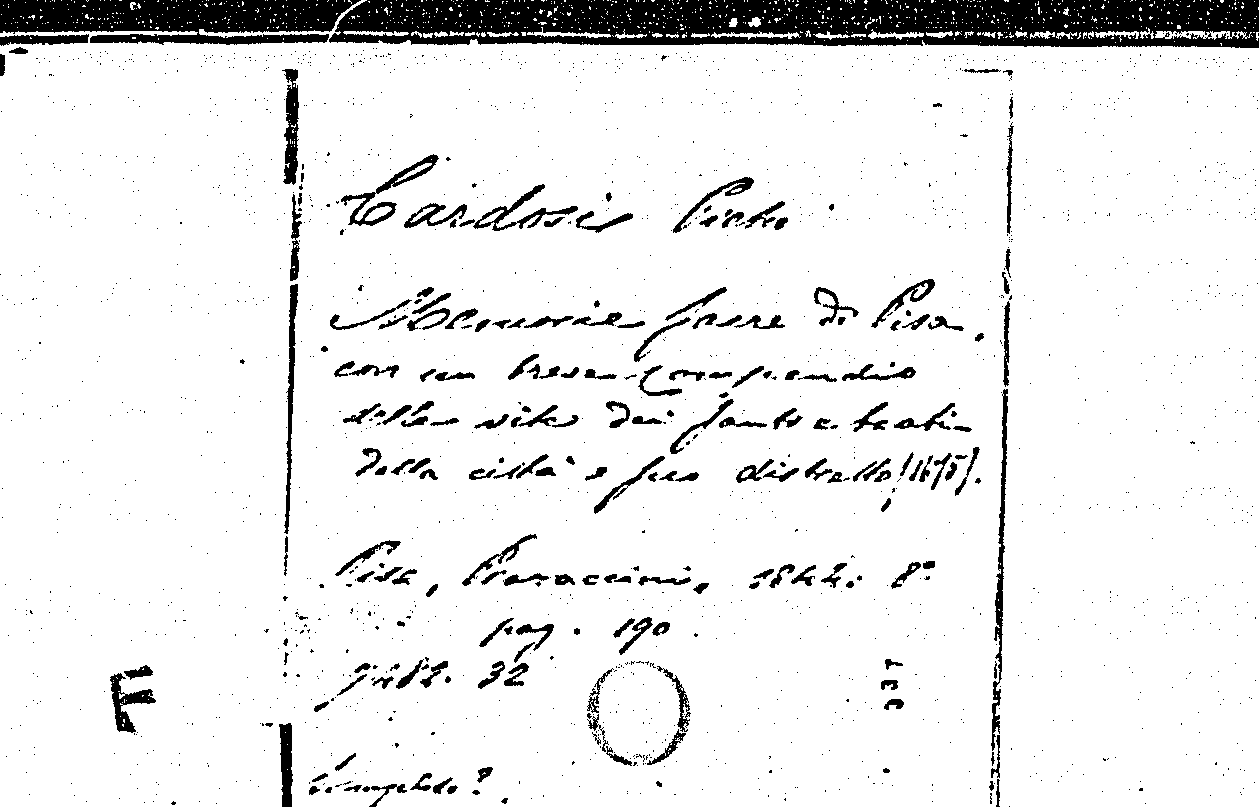 Cardosi Pietro
Memorie sacre di Pisa,
con un breve compendio
delle vite dei santi e beati
della città e suo distretto
Pisa, Prosperi
pag. 190
32
337
F